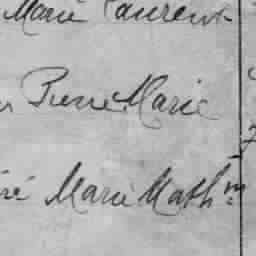 Marie Laurent
Pierre Marie
Marie Math.in